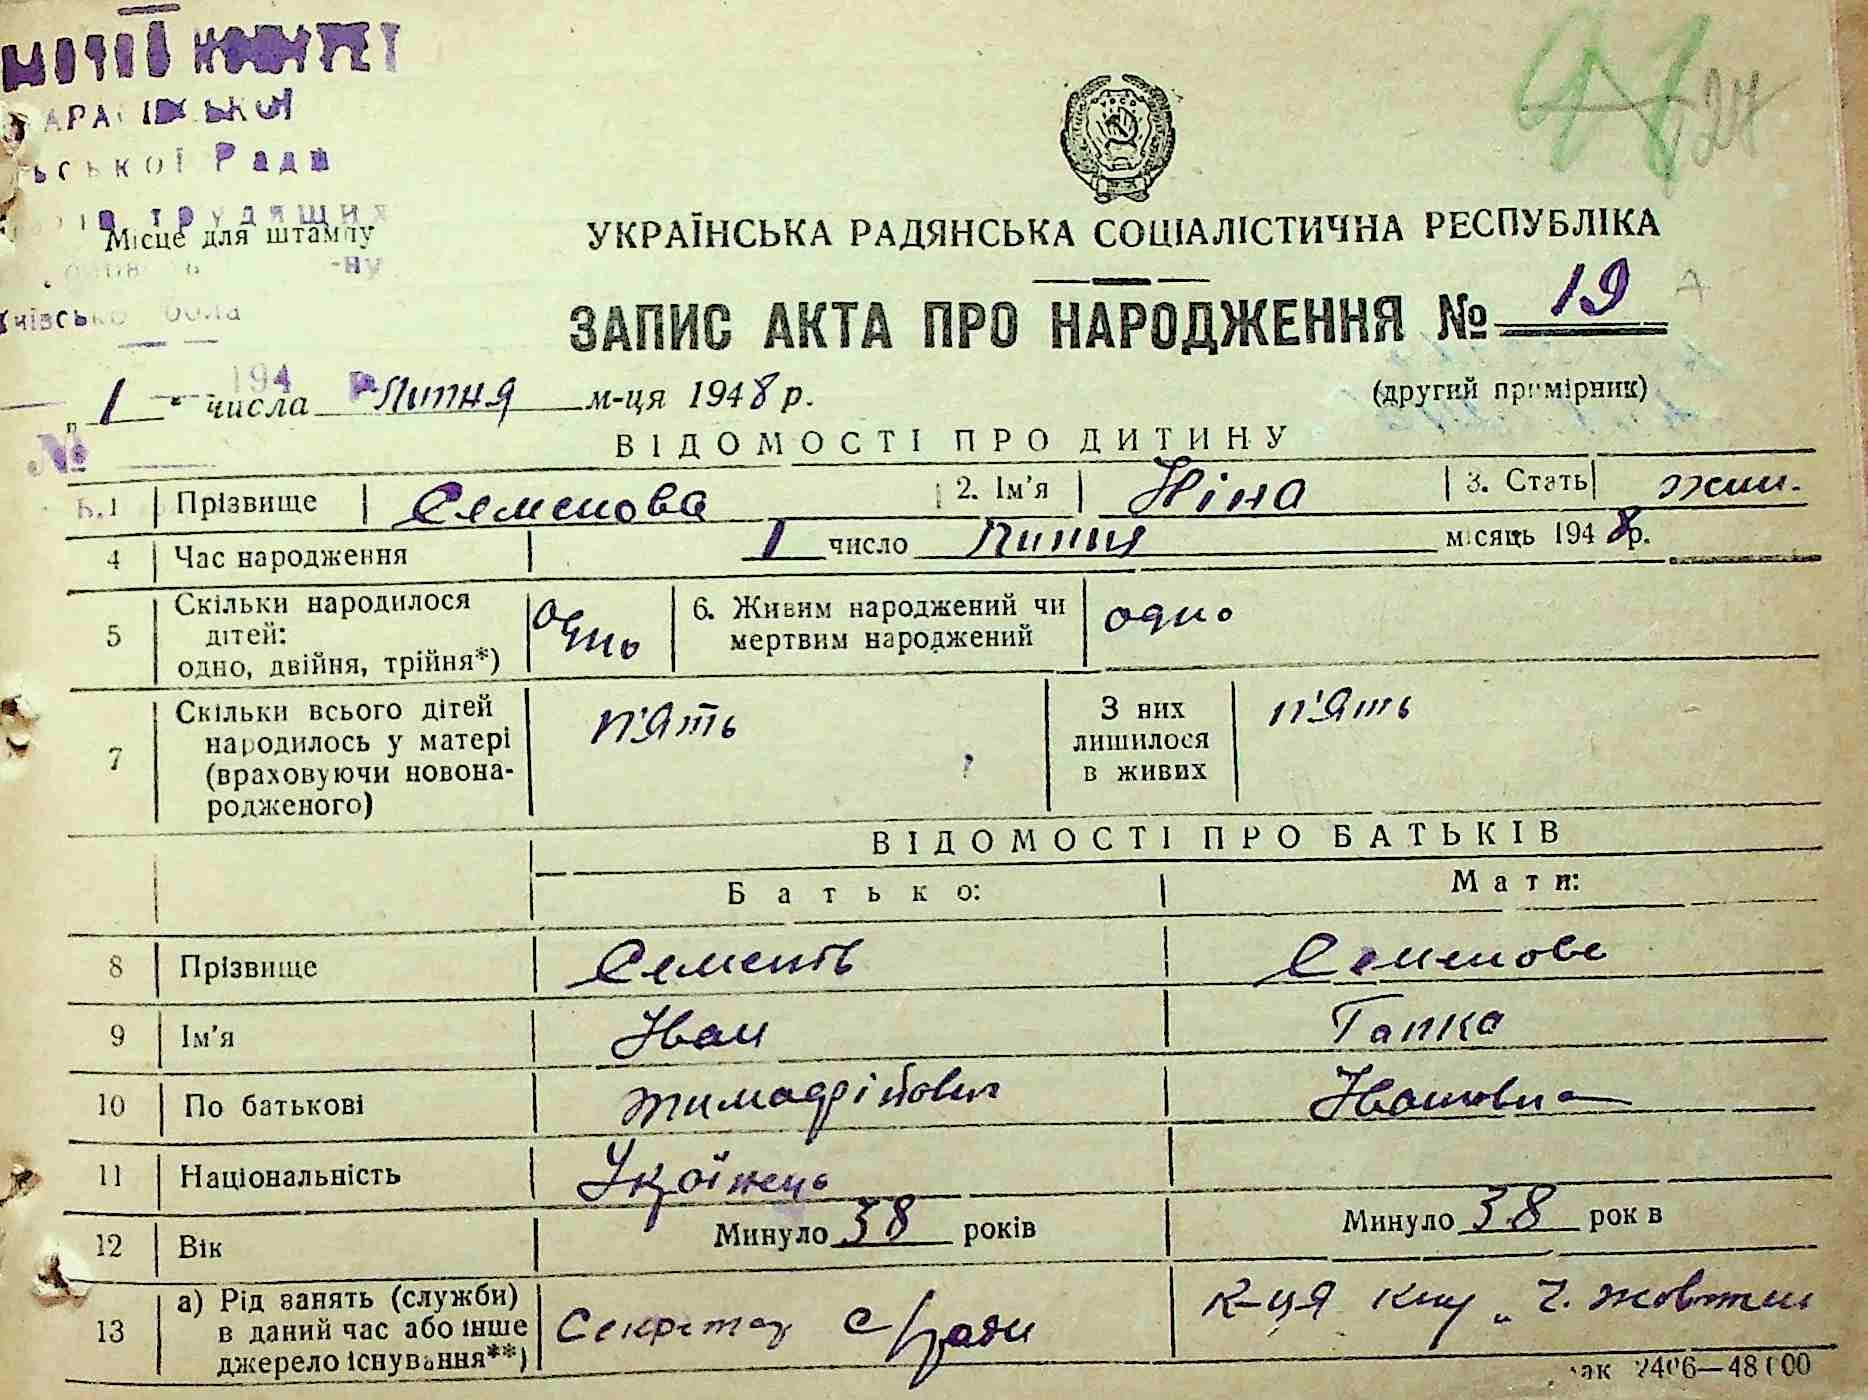 Рада
трудящих
Місце для штампу
94 127
УКРАЇНСЬКА РАДЯНСЬКА СОЦІАЛІСТИЧНА РЕСПУБЛІКА
ЗАПИС АКТА ПРО НАРОДЖЕННЯ № 19
(другий примірник)
194
„ 1 " числа Липня м-ця 1948 р.
№
ВІДОМОСТІ ПРО ДИТИНУ
Б.1 Прізвище Семенова 2. Ім'я Ніна 3. Стать жін.
4 Час народження 1 число Липня місяць 1948 р.
5 Скільки народилося дітей: одно, двійня, трійня*) одно 6. Живим народжений чи мертвим народжений одно
7 Скільки всього дітей народилось у матері (враховуючи новонародженого) п'ять З них лишилося в живих п'ять
ВІДОМОСТІ ПРО БАТЬКІВ
Батько: Мати:
8 Прізвище Семенов Семенова
9 Ім'я Іван Гапка
10 По батькові Тимофійович Іванівна
11 Національність Українець
12 Вік Минуло 38 років Минуло 38 років
13 а) Рід занять (служби) в даний час або інше джерело існування**) Секретар с/ради к-ця „ Ч. жовтень
2406—48100